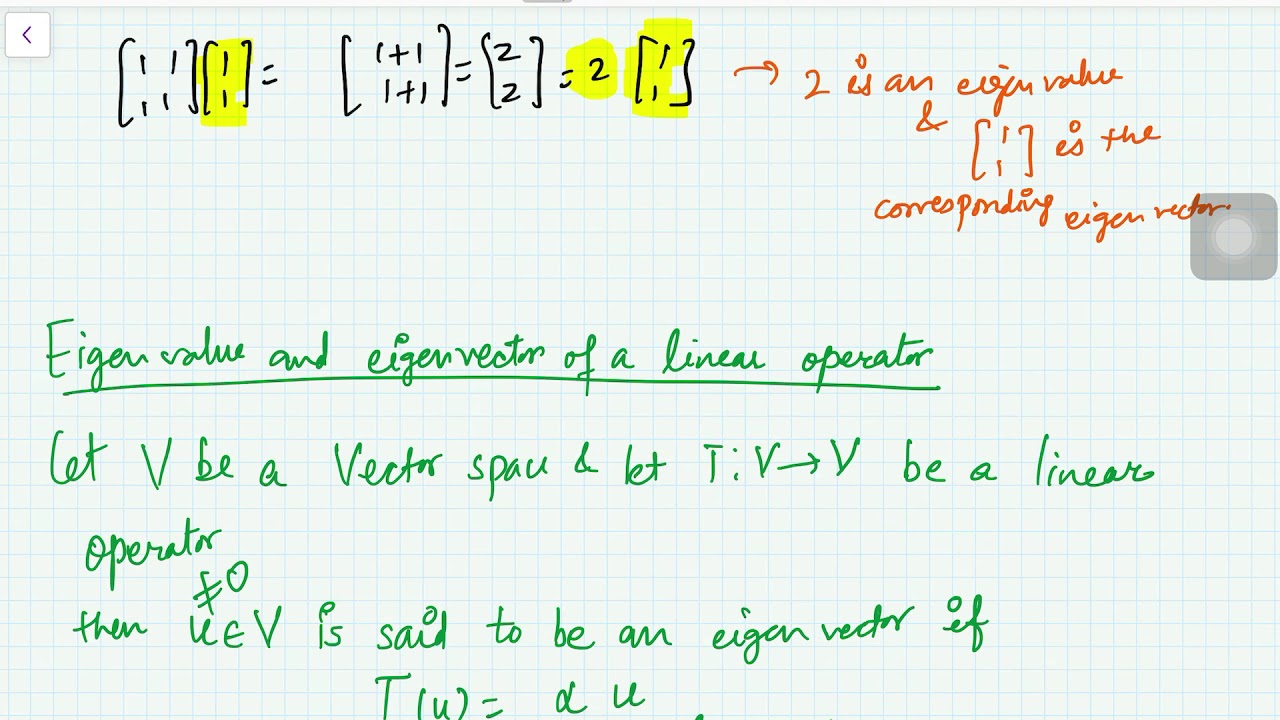 [1 1; 1 1] [1; 1] = [1+1; 1+1] = [2; 2] = 2 [1; 1] → 2 is an eigen value
& [1; 1] is the
corresponding eigen vector.
Eigen value and eigenvector of a linear operator
Let V be a Vector space & let T: V → V be a linear
operator
≠0
then u ∈ V is said to be an eigen vector if
T(u) = α u